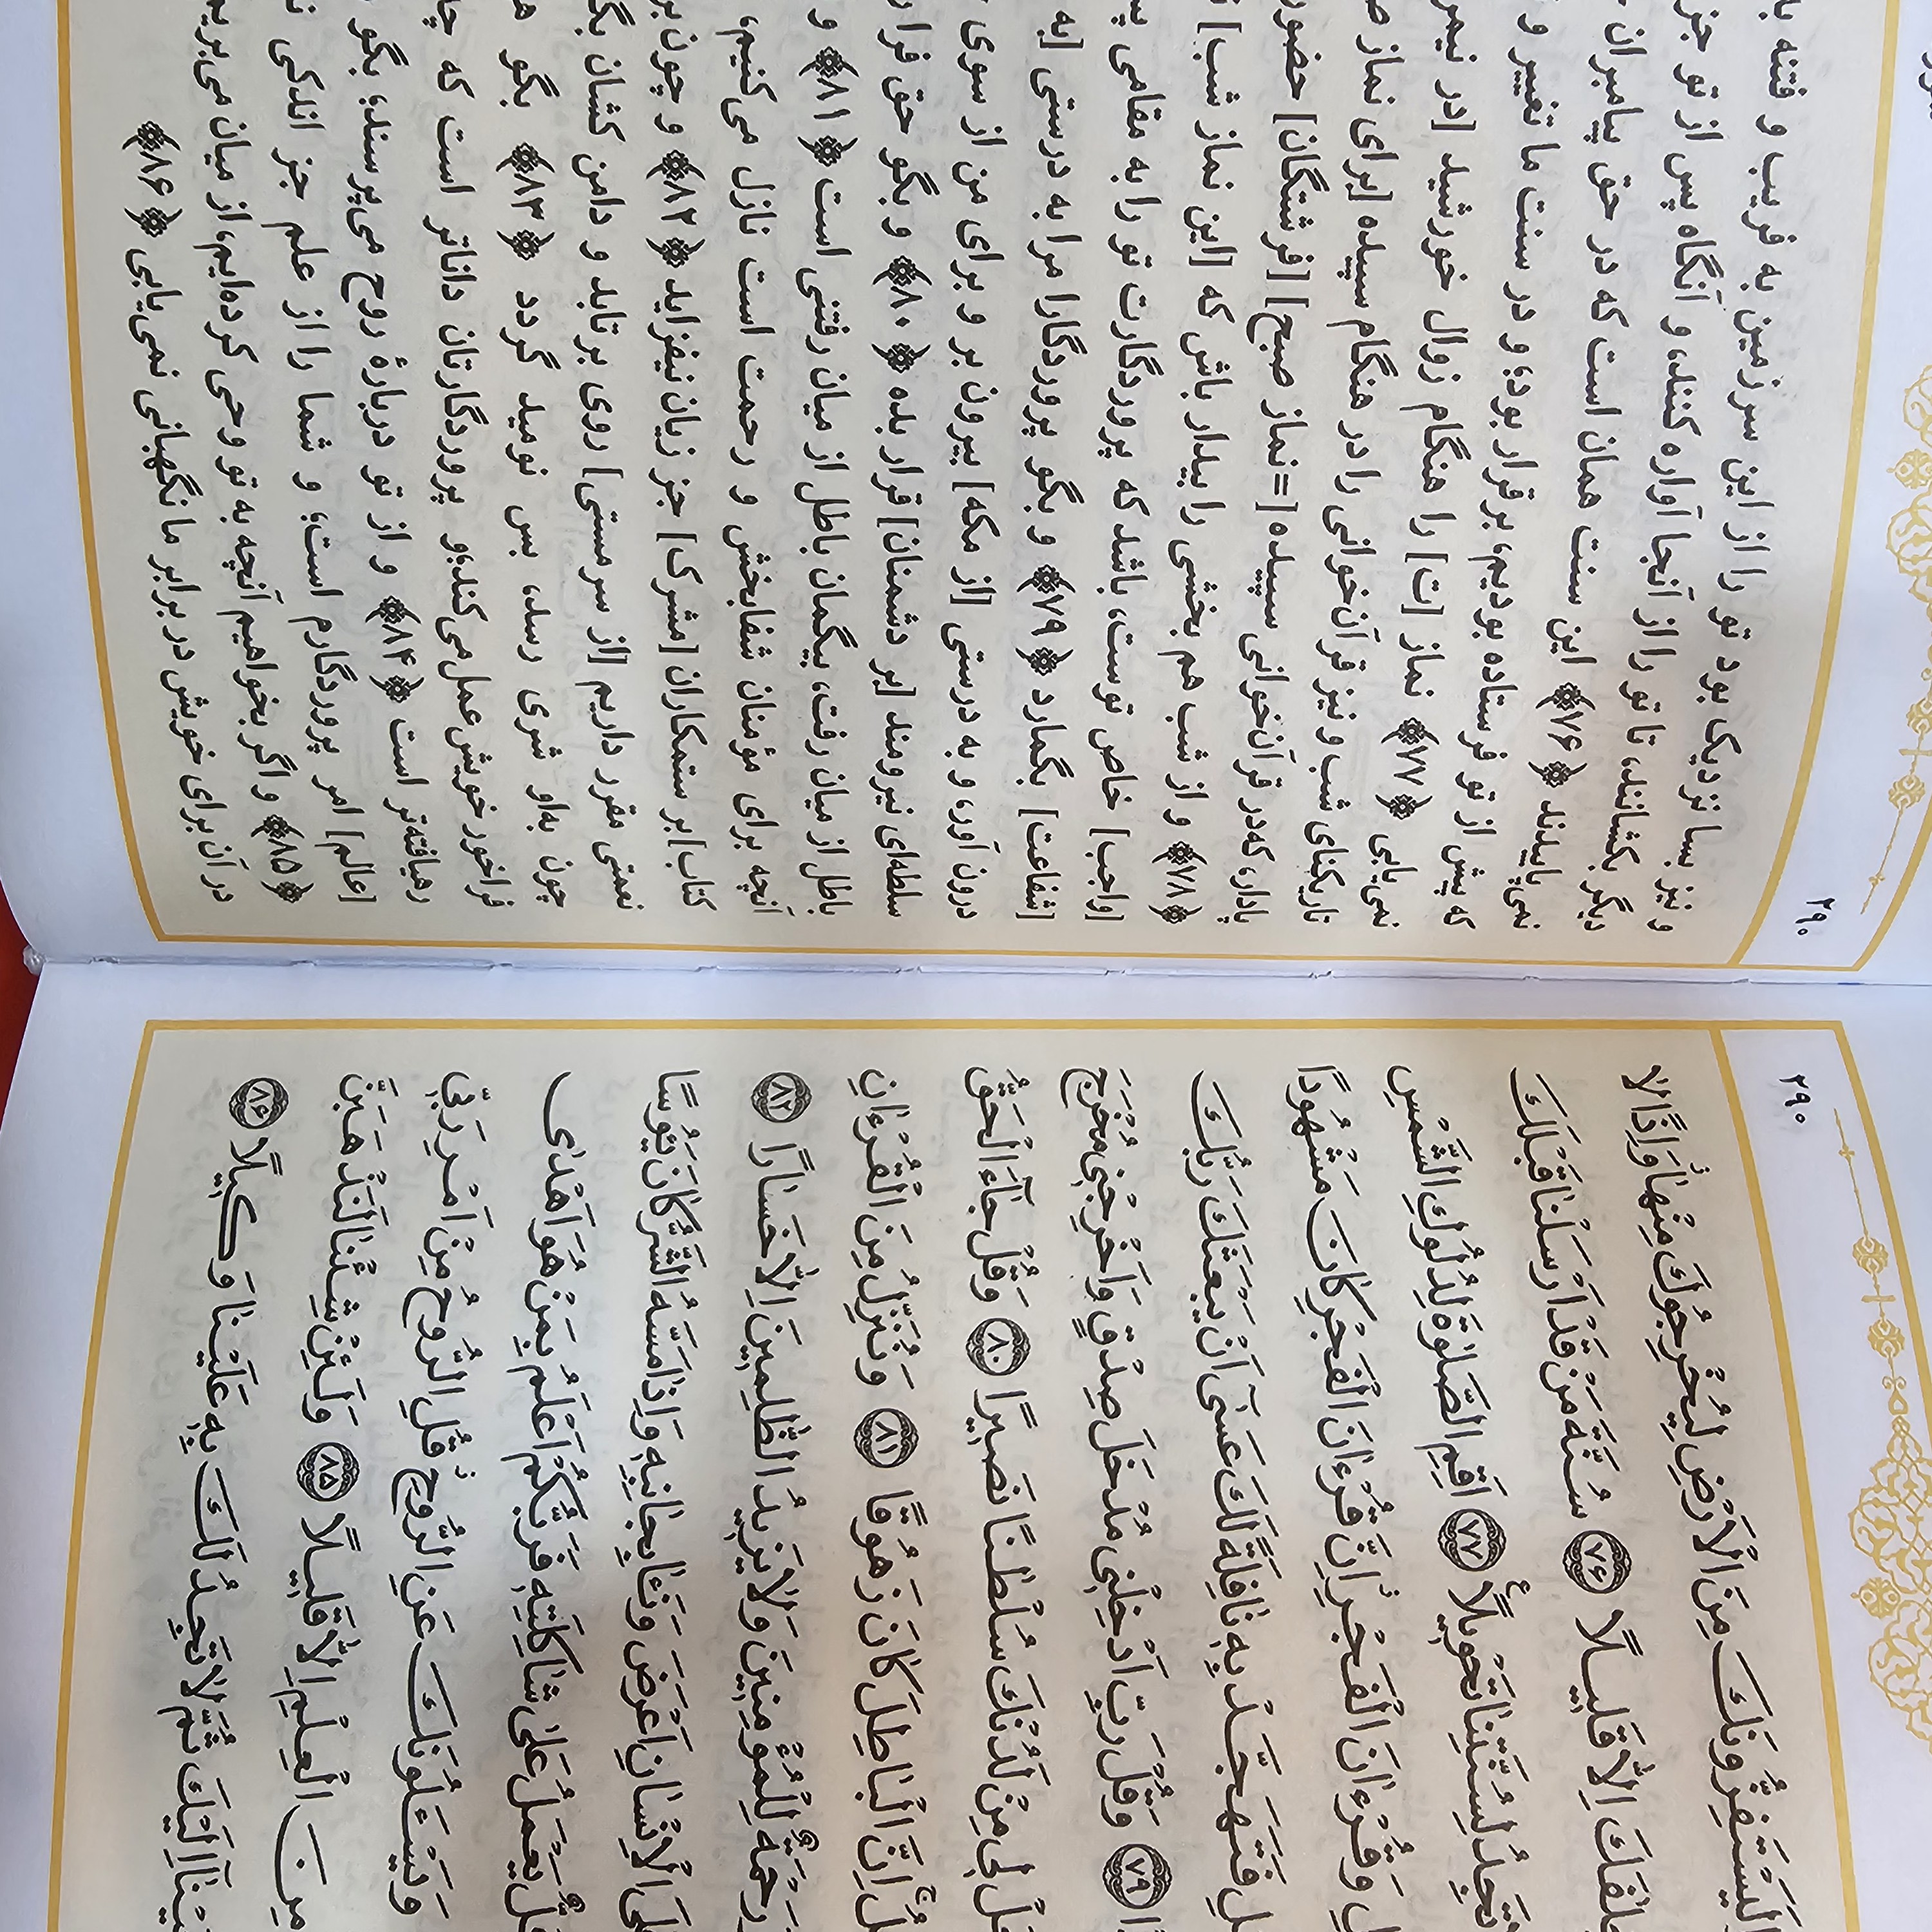 ۲۹۰
لَيَسْتَفِزُّونَكَ مِنَ الْاَرْضِ لِيُخْرِجُوكَ مِنْهَا وَاِذًا لَا
اِلَّا قَلِيلًا ۷۶ سُنَّةَ مَنْ قَدْ اَرْسَلْنَا قَبْلَكَ
تَجِدُ لِسُنَّتِنَا تَحْوِيلًا ۷۷ اَقِمِ الصَّلٰوةَ لِدُلُوكِ الشَّمْسِ
وَقُرْءَانَ الْفَجْرِ اِنَّ قُرْءَانَ الْفَجْرِ كَانَ مَشْهُودًا
فَتَهَجَّدْ بِهِ نَافِلَةً لَكَ عَسٰىٓ اَنْ يَبْعَثَكَ رَبُّكَ
۷۹ وَقُلْ رَبِّ اَدْخِلْنِى مُدْخَلَ صِدْقٍ وَاَخْرِجْنِى مُخْرَجَ
لِى مِنْ لَدُنْكَ سُلْطٰنًا نَصِيرًا ۸۰ وَقُلْ جَآءَ الْحَقُّ
اِنَّ الْبَاطِلَ كَانَ زَهُوقًا ۸۱ وَنُنَزِّلُ مِنَ الْقُرْءَانِ
رَحْمَةٌ لِلْمُؤْمِنِينَ وَلَا يَزِيدُ الظّٰلِمِينَ اِلَّا خَسَارًا ۸۲
الْاِنْسَانِ اَعْرَضَ وَنَـٔا بِجَانِبِهِ وَاِذَا مَسَّهُ الشَّرُّ كَانَ يَـُٔوسًا
يَعْمَلُ عَلٰى شَاكِلَتِهِ فَرَبُّكُمْ اَعْلَمُ بِمَنْ هُوَ اَهْدٰى
وَيَسْـَٔلُونَكَ عَنِ الرُّوحِ قُلِ الرُّوحُ مِنْ اَمْرِ رَبِّى
مِنَ الْعِلْمِ اِلَّا قَلِيلًا ۸۵ وَلَئِنْ شِئْنَا لَنَذْهَبَنَّ
اِلَيْكَ ثُمَّ لَا تَجِدُ لَكَ بِهِ عَلَيْنَا وَكِيلًا ۸۶
۲۹۰
و نیز بسا نزدیک بود تو را از این سرزمین به فریب و فتنه
دیگر بکشانند، تا تو را از آنجا آواره کنند، و آنگاه پس از تو جز
نمی‌پاییدند ﴿۷۶﴾ این سنت همان است که در حق پیامبران
که پیش از تو فرستاده بودیم، برقرار بود؛ و در سنت ما تغییر و
نمی‌یابی ﴿۷۷﴾ نماز [ت] را هنگام زوال خورشید [در
تاریکنای شب و نیز قرآن‌خوانی را در هنگام سپیده [برای نماز
پادار، که در قرآن‌خوانی سپیده [=نماز صبح] [فرشتگان] حضور
﴿۷۸﴾ و از شب هم بخشی را بیدار باش که [این نماز شب]
[واجب] خاص توست، باشد که پروردگارت تو را به مقامی
[شفاعت] بگمارد ﴿۷۹﴾ و بگو پروردگارا مرا به درستی [به
درون آور، و به درستی [از مکه] بیرون بر و برای من از سوی
سلطه‌ای نیرومند [بر دشمنان] قرار بده ﴿۸۰﴾ و بگو حق فرا
باطل از میان رفت، بیگمان باطل از میان رفتنی است ﴿۸۱﴾ و
آنچه برای مؤمنان شفابخش و رحمت است نازل می‌کنیم،
کتاب] بر ستمکاران [مشرک] جز زیان نیفزاید ﴿۸۲﴾ و چون بر
نعمتی مقرر داریم [از سرمستی] روی برتابد و دامن کشان
چون به‌او شری رسد، بس نومید گردد ﴿۸۳﴾ بگو
فراخور خویش عمل می‌کند؛ و پروردگارتان داناتر است که
رهیافته‌تر است ﴿۸۴﴾ و از تو دربارهٔ روح می‌پرسند، بگو
[عالم] امر پروردگارم است؛ و شما را از علم جز اندکی
﴿۸۵﴾ و اگر بخواهیم آنچه به تو وحی کرده‌ایم، از میان می‌بریم
در آن برای خویش در برابر ما نگهبانی نمی‌یابی ﴿۸۶﴾